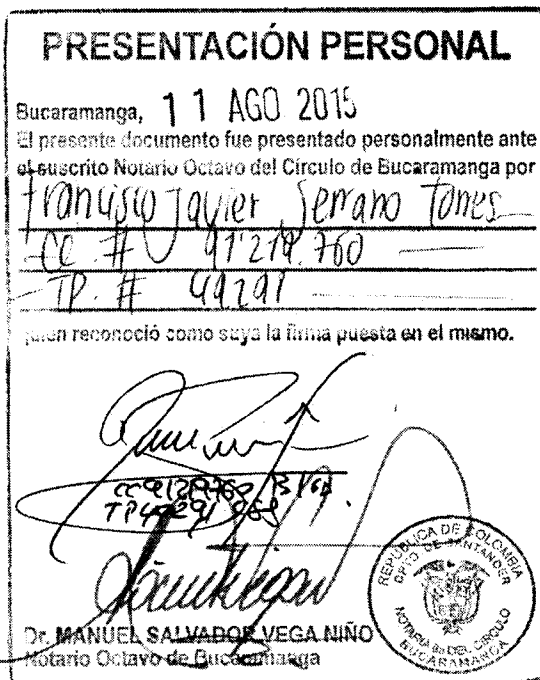 PRESENTACIÓN PERSONAL
Bucaramanga, 11 AGO 2015
El presente documento fue presentado personalmente ante
el suscrito Notario Octavo del Círculo de Bucaramanga por
Francisco Javier Serrano Torres
CC # 91'219.760
TP. # 49291
quien reconoció como suya la firma puesta en el mismo.
CC 91219760 B/ga
TP 49291 CSJ
Dr. MANUEL SALVADOR VEGA NIÑO
Notario Octavo de Bucaramanga
REPÚBLICA DE COLOMBIA
DPTO. DE SANTANDER
NOTARIA 8a. DEL CIRCULO
BUCARAMANGA